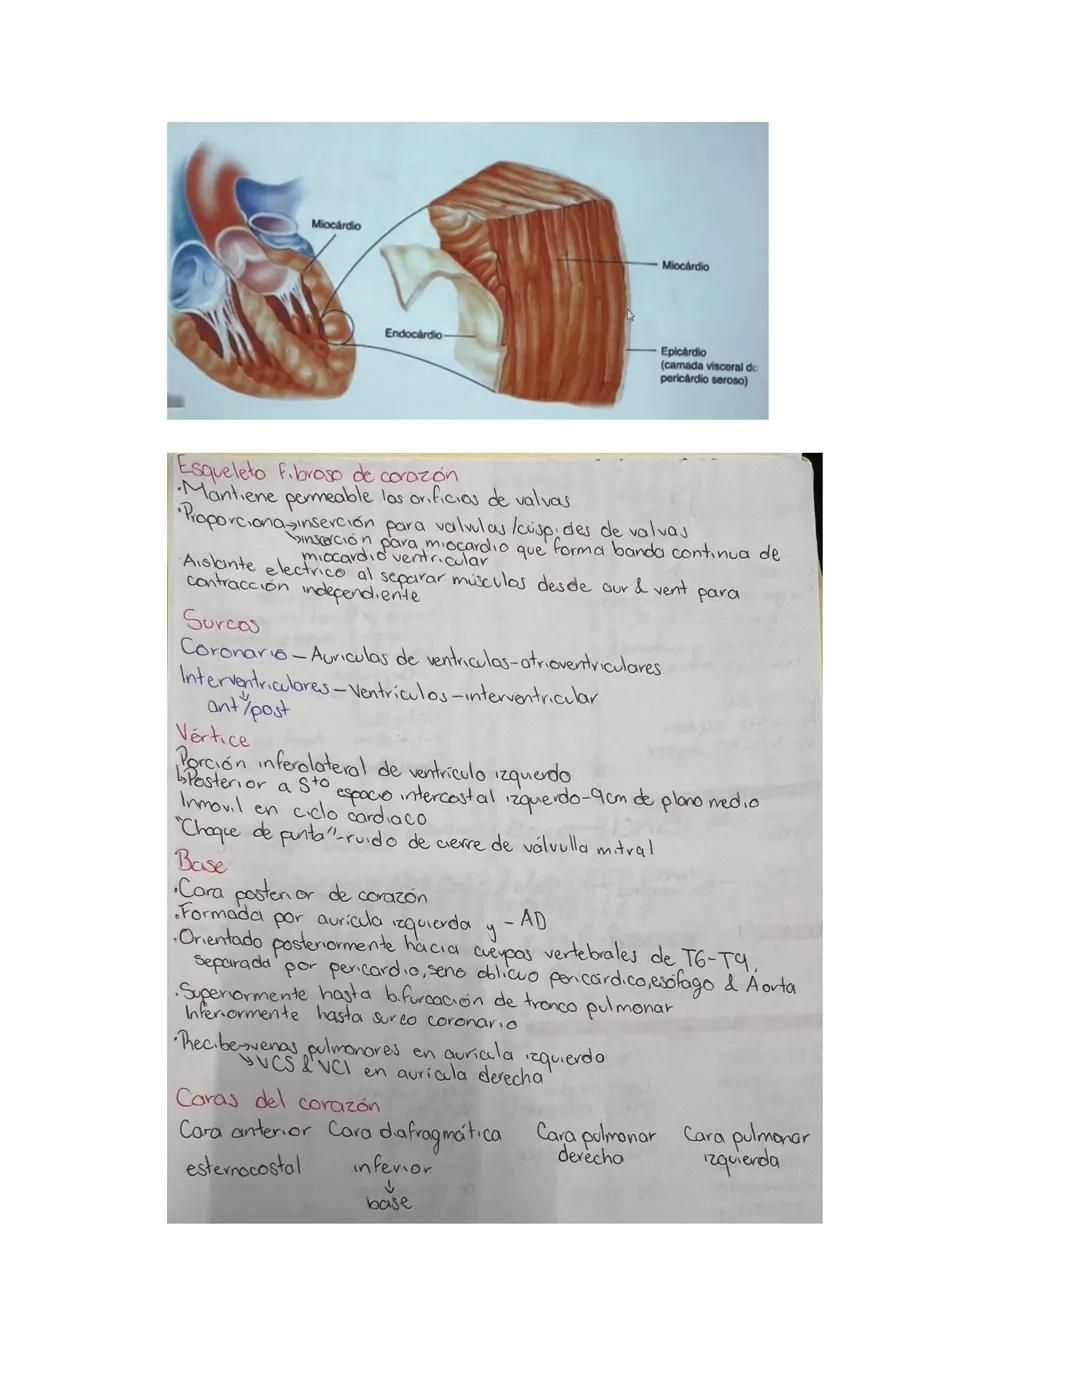 Miocárdio
Miocárdio
Endocárdio
Epicárdio
(camada visceral do
pericárdio seroso)
Esqueleto fibroso de corazón
·Mantiene permeable los orificios de valvas
·Proporciona→inserción para valvulas/cúspides de valvas
↳inserción para miocardio que forma banda continua de
miocardio ventricular
·Aislante electrico al separar músculos desde aur & vent para
contracción independiente
Surcos
Coronario – Auriculas de ventriculas-atrioventriculares
Interventriculares – Ventrículos – interventricular
↓
ant/post
Vértice
Porción inferolateral de ventrículo izquierdo
↳Posterior a 5to espacio intercostal izquierdo-9cm de plano medio
Inmovil en ciclo cardiaco
"Choque de punta"-ruido de cierre de válvulla mitral
Base
·Cara posterior de corazón
·Formada por aurícula izquierda y - AD
·Orientado posteriormente hacia cuerpos vertebrales de T6-T9,
separada por pericardio, seno oblicuo pericárdico, esófago & Aorta
·Superiormente hasta bifurcación de tronco pulmonar
Inferiormente hasta surco coronario
·Recibe→venas pulmonares en auricula izquierdo
↘VCS & VCI en aurícula derecha
Caras del corazón
Cara anterior Cara diafragmática Cara pulmonar derecha Cara pulmonar izquierda
esternocostal inferior
↓
base